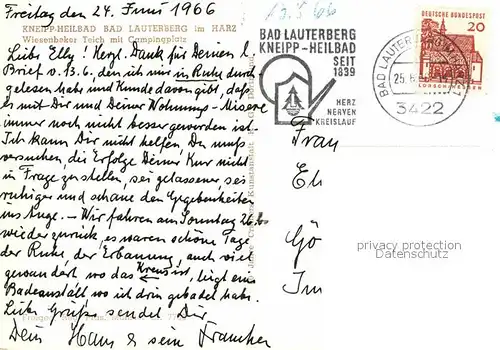 Freitag den 24. Juni 1966
KNEIPP-HEILBAD BAD LAUTERBERG im HARZ
Wiesenbeker Teich mit Campingplatz
Liebe Elly! Herzl. Dank für Deinen l.
Brief v. 13.6., den ich mir in Ruhe durch-
gelesen habe und Kunde davon gibt, daß
es mit Dir und Deiner Wohnungs-Misere
immer noch nicht besser geworden ist.
Ich kann Dir nicht helfen. Du mußt
versuchen, die Erfolge Deiner Kur nicht
in Frage zu stellen, sei gelassener, sei
ruhiger und schaue den Gegebenheiten
ins Auge. – Wir fahren am Sonntag 26.6.
wieder zurück, es waren schöne Tage
der Ruhe, der Erbauung, auch viel
gewandert wo das Kreuz ist, liegt eine
Badeanstalt wo ich drin gebadet habe.
Liebe Grüße sendet Dir
Dein Hans & sein
BAD LAUTERBERG
KNEIPP-HEILBAD
SEIT
1839
HERZ
NERVEN
KREISLAUF
BAD LAUTERBERG
25.6.
3422
DEUTSCHE BUNDESPOST
20
LORSCH
Frau
El
Gö
Im
proprietary copyright